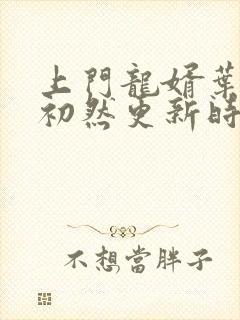 上門龍婿葉
初然更新時
不想當胖子